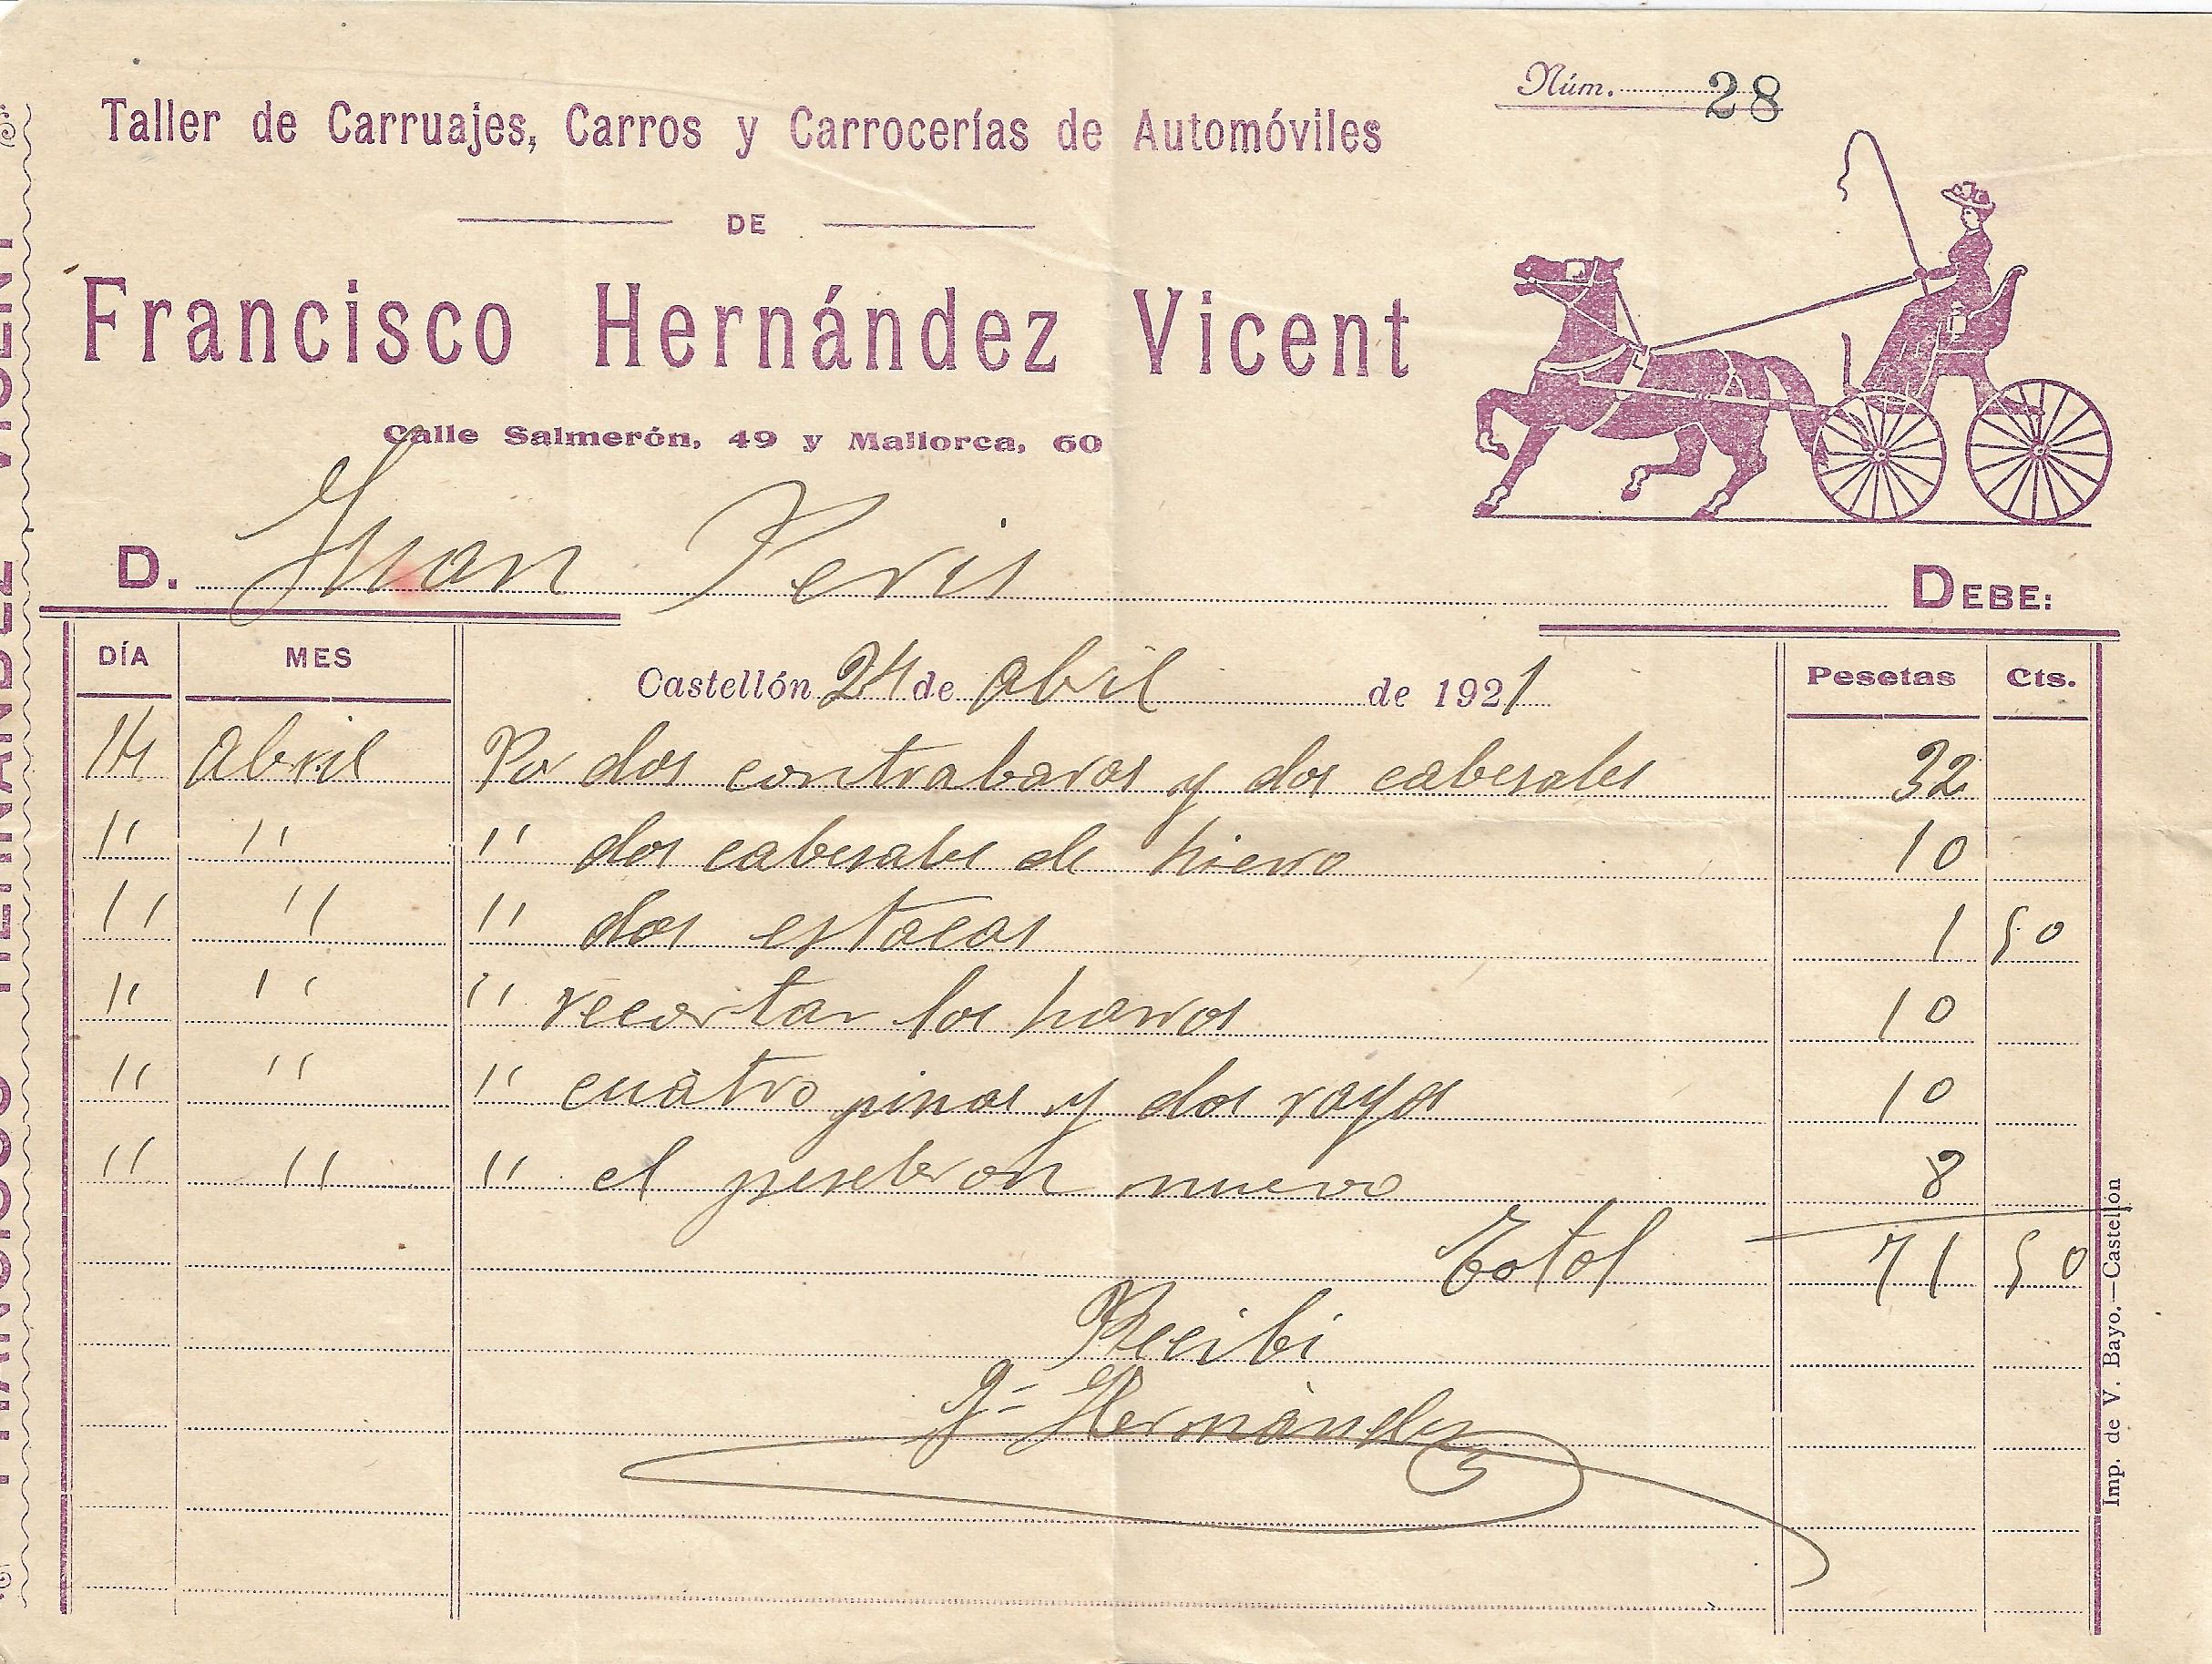 Núm. 28
Taller de Carruajes, Carros y Carrocerías de Automóviles
DE
Francisco Hernández Vicent
Calle Salmerón, 49 y Mallorca, 60
D. Juan Peris DEBE:
DÍA MES Castellón 24 de abril de 1921 Pesetas Cts.
14 abril Por dos contrabaras y dos cabesales 32
" " " dos cabesales de hierro 10
" " " dos estacas 1 50
" " " recortar los harros 10
" " " cuatro pinas y dos rayos 10
" " " el pesebron nuevo 8
Total 71 50
Recibi
F= Hernández
Imp. de V. Bayo.—Castellón
FRANCISCO HERNÁNDEZ VICENT